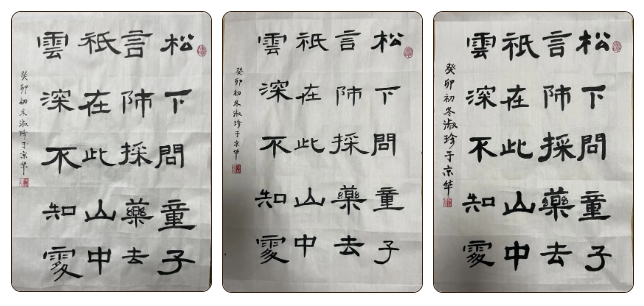 松下問童子
言師採藥去
祇在此山中
雲深不知處
癸卯初冬淑珍于京華
松下問童子
言師採藥去
祇在此山中
雲深不知處
癸卯初冬淑珍于京華
松下問童子
言師採藥去
祇在此山中
雲深不知處
癸卯初冬淑珍于京華